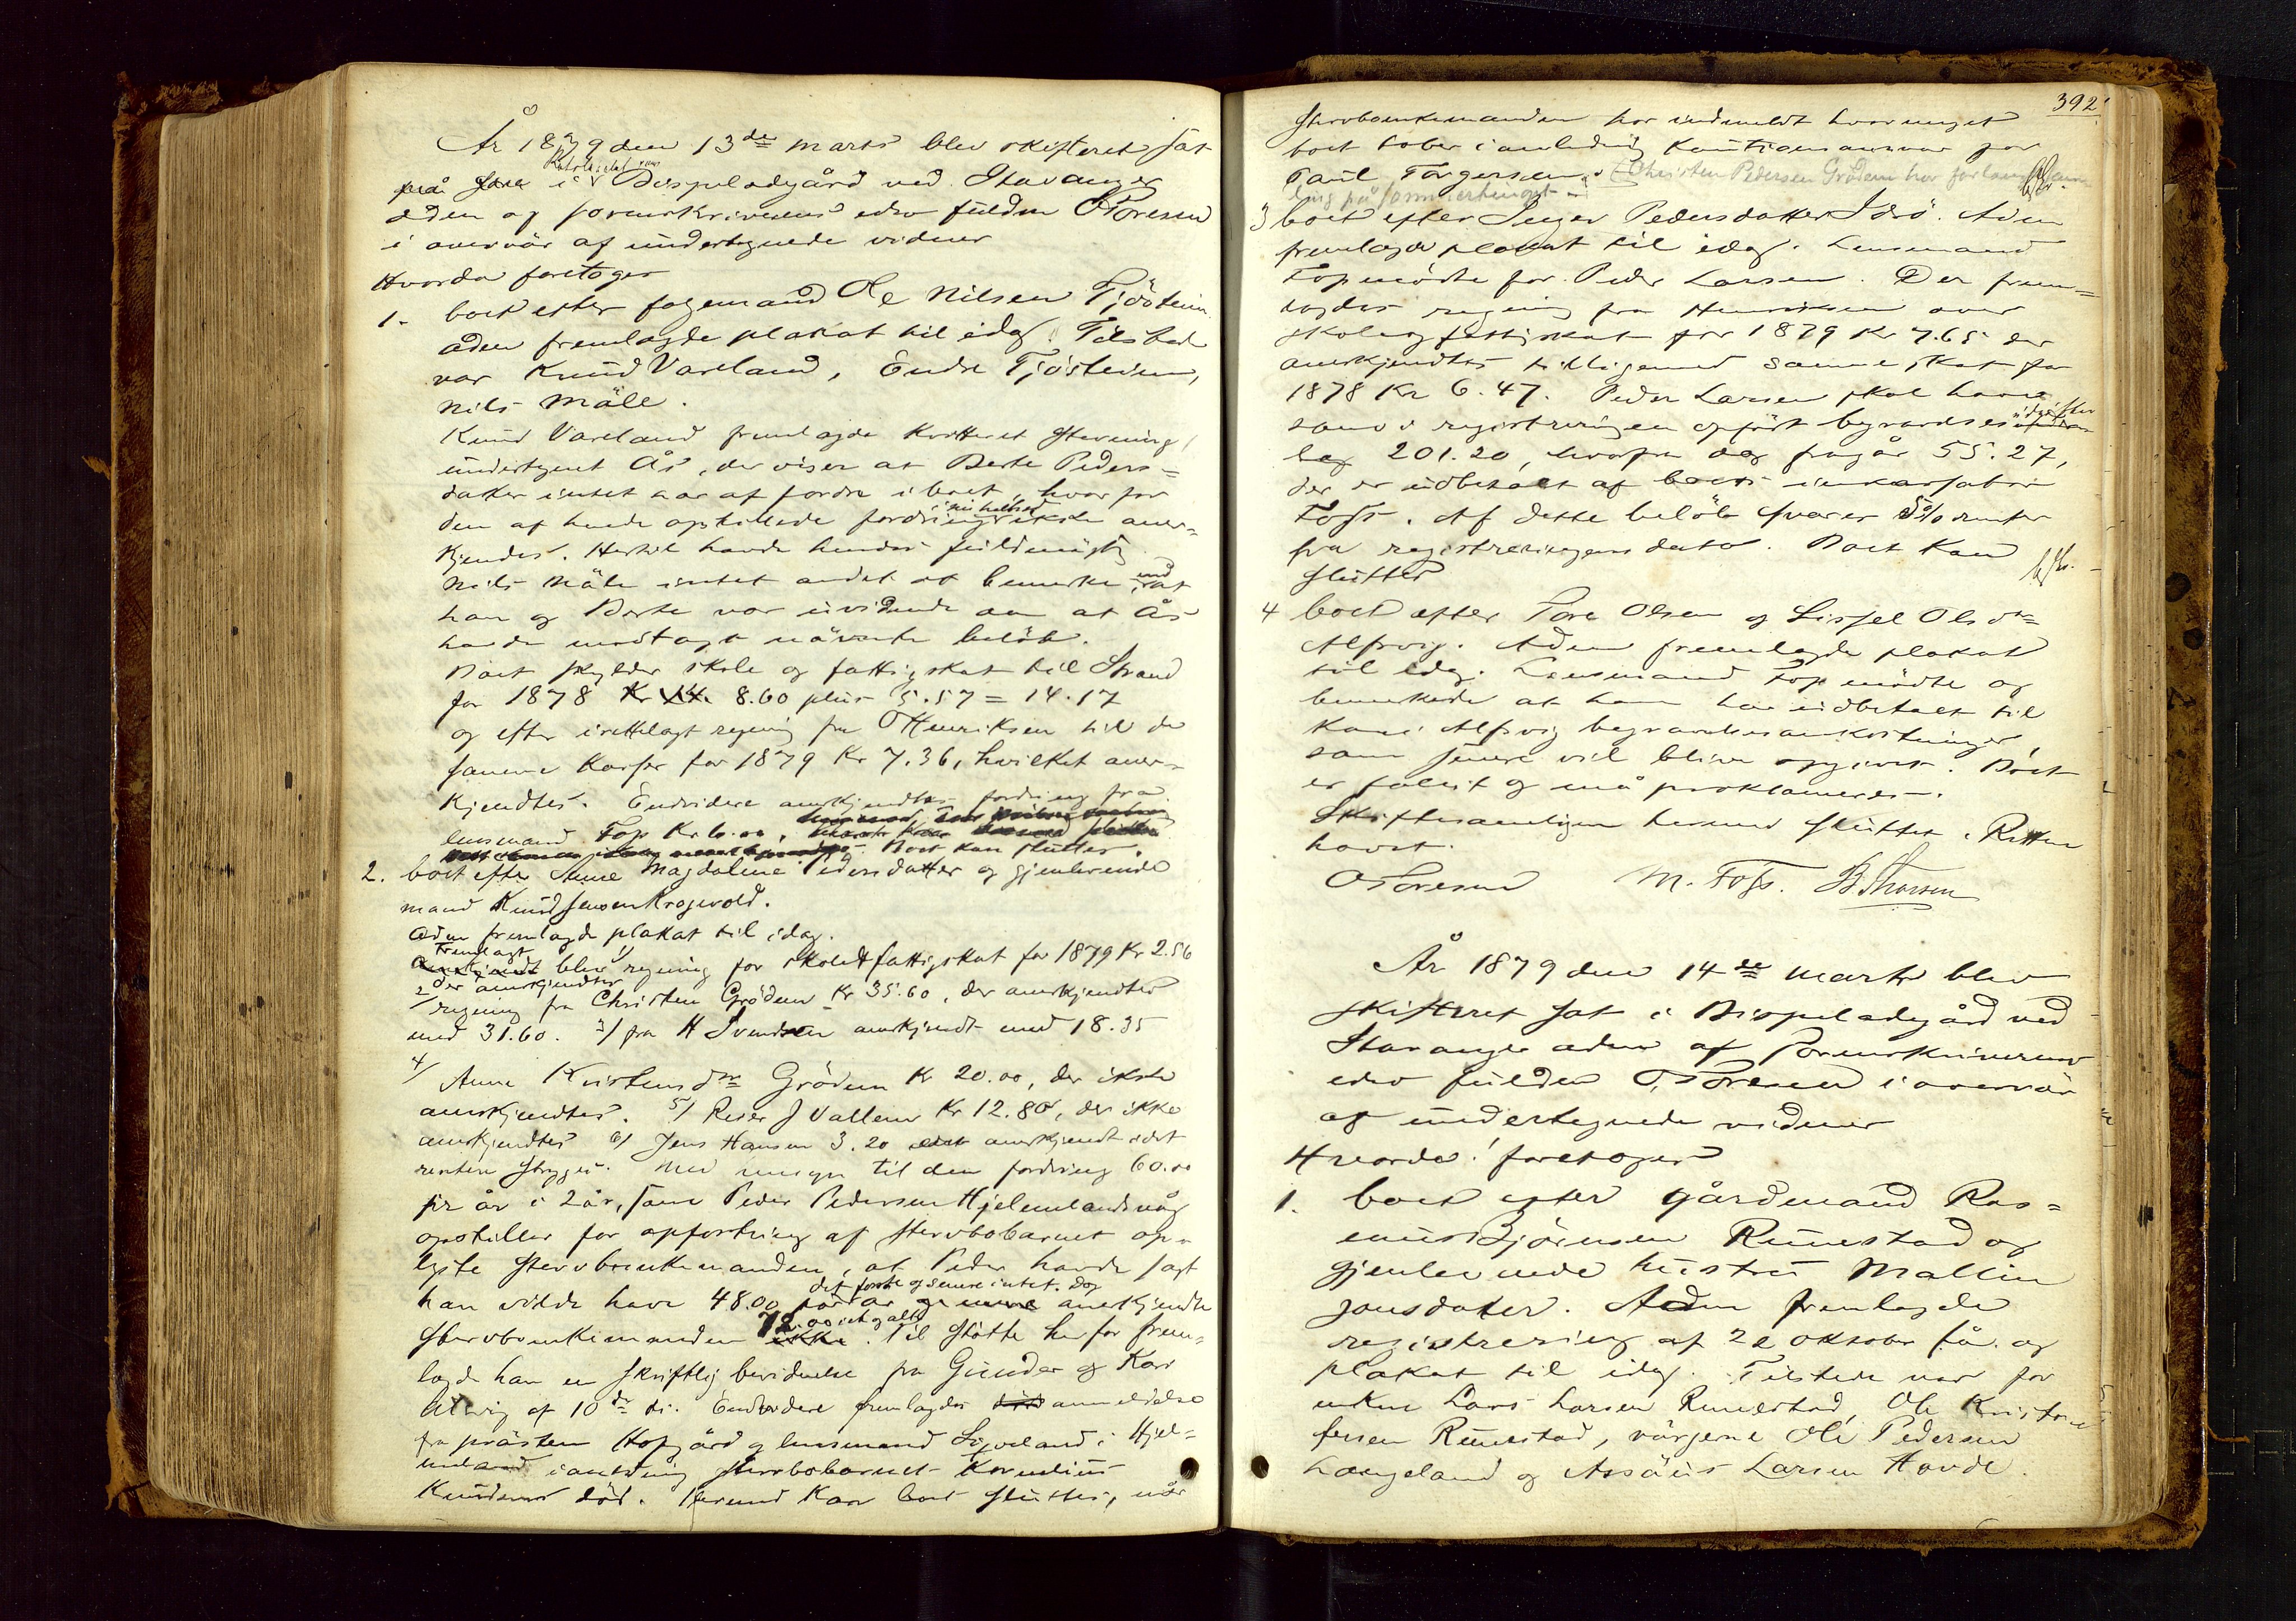 År 1879 den 13de marts blev skifteret sat
på i Bispeladegård ved Stavanger
aden og sorenskriverens edsv fuldm OToresen
i overvær af undertegnede vidner
Hvorda foretoges
1. boet efter fogemand Ole Nilsen Tjöstem
aden fremlagde plakat til idag. Tilstede
var Knud Vareland, Endre Tjöstem,
Nils Mäle.
Knud Vareland fremlagde kvitteret stevning
undertegnet Ås, der viser at Berte Peders=
datter intet har at fordre i boet, hvorfor
den af hende opstillede fordring ikke aner=
kjendes. Hertil havde hendes fuldmægtig
Nils Mäle intet andet at bemerke end at
han og Berte var uvidende om at Ås
havde modtaget nävnte belöb.
Boet skylder skole og fattigskat til Strand
for 1878 Kr 8.60 plus 5.57 = 14.17
og efter irettelagt regning fra O Henriksen til de
samme kasser for 1879 Kr 7.36, hvilket aner=
kjendtes. Endvidere anerkjendtes fordring fra
lensmand Foss Kr 6.00, Boet kan sluttes.
2. boet efter Anne Magdalene Pedersdatter og gjenlevende
mand Knud Jensen Kragevold.
Aden fremlagde plakat til idag.
Fremlagt blev 1/ regning for skole & fattigskat for 1879 Kr 2.56
der anerkjendtes
2/ regning fra Christen Grödem Kr 35.60, der anerkjendtes
med 31.60. 3/ fra H Svendsen anerkjendt med 18.35
4/ Anne Kristensdr Grödem Kr 20.00, der ikke
anerkjendtes. 5/ Reier J Vallem Kr 12.80, der ikke
anerkjendtes 6/ Jens Hansen 3.20 anerkjendt idet
renten stryges. Med hensyn til den fordring 60.00
pr år i 2 år, som Peder Pedersen Hjelmelandsvåg
opstiller for opfostring af stervbobarnet op=
lyste stervboenkemanden, at Peder havde sagt
han vilde have 48.00 for det forste og senere intet. Dog anerkjendte
stervboenkemanden 72.00 i et og alt. Til stötte herfor frem=
lagde han en skriftlig bevidnelse fra Gunder og Kari
Alsvig af 10de ds. Endvidere fremlagdes anmeldelse
fra prästen Hofgård og lensmand Sigveland i Hjel=
meland i anledning stervbobarnet Kornelius
Knudsens död. Hermed kan boet sluttes, når
392
stervboenkemanden har indmeldt hvormeget
boet taber i anledning kautionsansvar for
Paul Torgersen. (Christen Pedersen Grödem har forlangt
på sommertinget)
3 boet efter Inger Pedersdatter Idsö. Aden
fremlagde plakat til idag. Lensmand
Foss mödte for Peder Larsen. Der frem=
lagdes regning fra Henriksen over
skole og fattigskat for 1879 Kr 7.65 der
anerkjendtes tilligemed samme skat for
1878 Kr 6.47. Peder Larsen skal have
som i registreringen opfört begravelsesudgifter
201.20, hvorfra dog fragår 55.27,
der er udbetalt af boets inkassator
Foss. Af dette belöb svares 5% renter
fra registreringens dato. Boet kan
sluttes
4 boet efter Tore Olsen og Lissel Olsdtr
Alsvig. Aden fremlagde plakat
til idag. Lensmand Foss mödte og
bemerkede at han har udbetalt til
Kari Alsvig begravelsesomkostninger,
som senere vil blive opgivet. Boet
er falit og må proklameres.
Skiftesamlingen hermed sluttet. Retten
hævet.
OToresen M. Foss. B. Thorsen
År 1879 den 14de marts blev
skifteret sat i Bispeladegård ved
Stavanger aden af sorenskriverens
edsv fuldm O.Toresen i overvær
af undertegnede vidner
Hvorda! foretoges
1. boet efter gårdmand Ras=
mus Björnsen Runestad og
gjenlevende hustru Mallin
Jonsdatter. Aden fremlagde
registrering af 22 oktober f.å. og
plakat til idag. Tilstede var for
enken Lars Larsen Runestad, Ole Kristof=
fersen Runestad, värgerne Ole Pedersen
Langeland og Assäus Larsen Hovde.